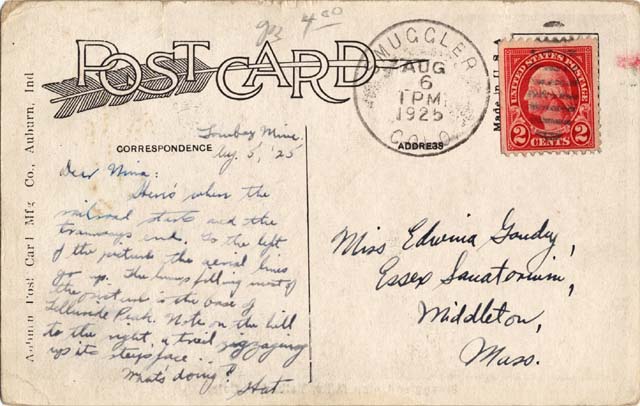 POST CARD
gr 4.00
MUGGLER
AUG
6
1 PM
1925
COLO.
UNITED STATES POSTAGE
2 2
CENTS
Made in U.S.A.
Auburn Post Card Mfg Co., Auburn, Ind
CORRESPONDENCE
ADDRESS
Tomboy Mine
Aug. 5, '25
Dear Nina:
Here's where the
railroad starts and the
tramways end. To the left
of the picture the aerial lines
go up. The lump filling most of
the picture is the base of
Telluride Peak. Note on the hill
to the right, a trail zigzaging
up its steep face..
What's doing?
Hat.
Miss Edwina Goudy,
Essex Sanatorium,
Middleton,
Mass.